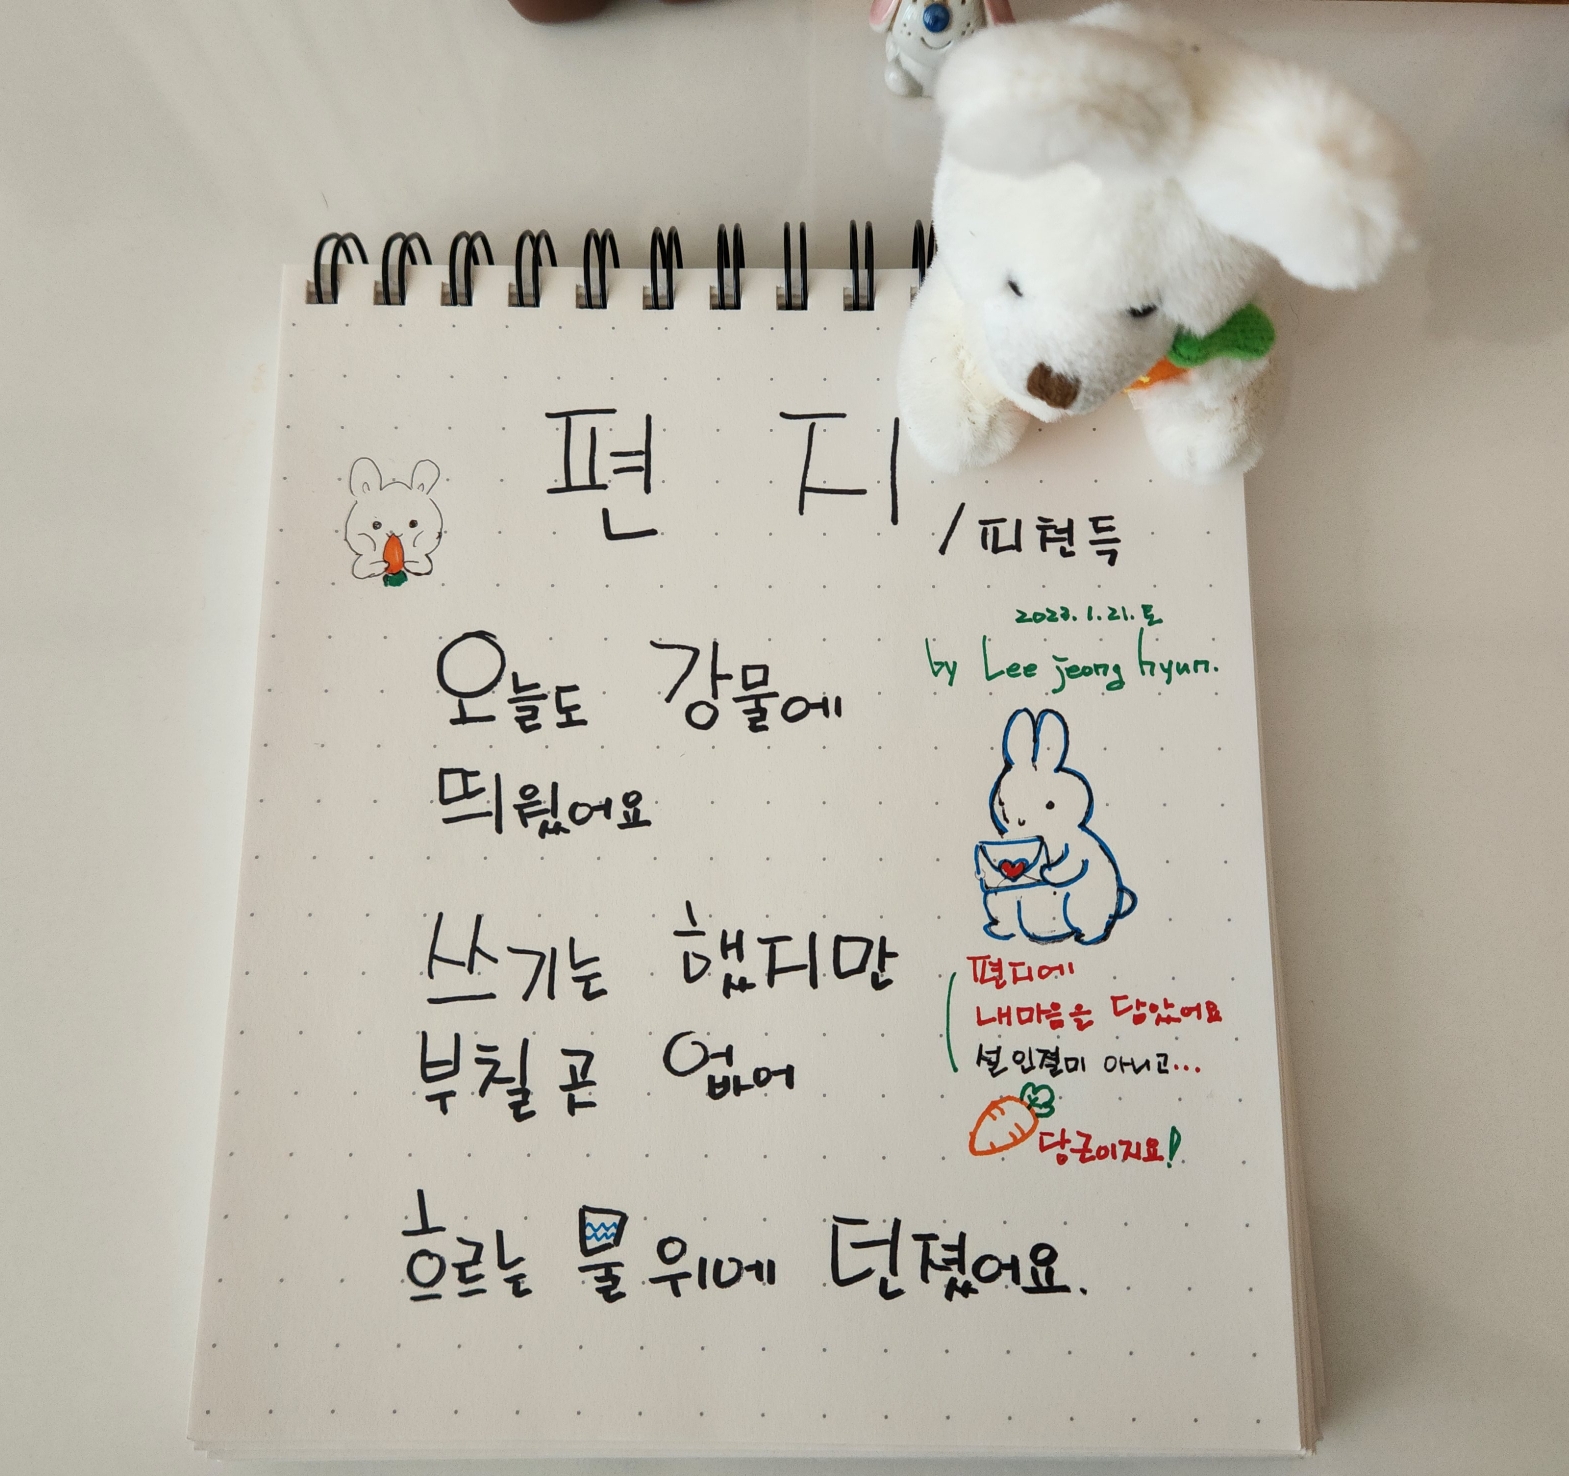 편 지
/ 피현득
2023. 1. 21. 토
by Lee jeong hyun.
오늘도 강물에
띄웠어요
쓰기는 했지만
부칠 곳 없어
흐르는 물 위에 던졌어요.
편지에
내 마음을 담았어요
설 인절미 아니고...
당근이지요!